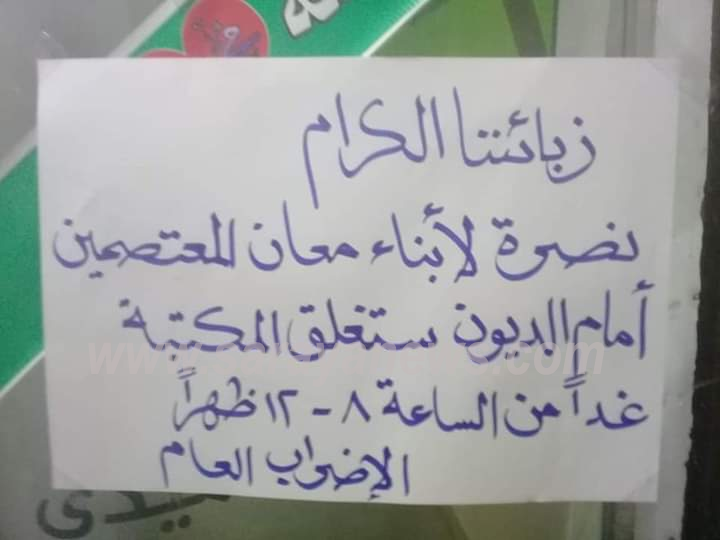 زبائننا الكرام
نصرة لأبناء معان المعتصمين
أمام الديون ستغلق المكتبة
غداً من الساعة ٨ - ١٢ ظهراً
الإضراب العام